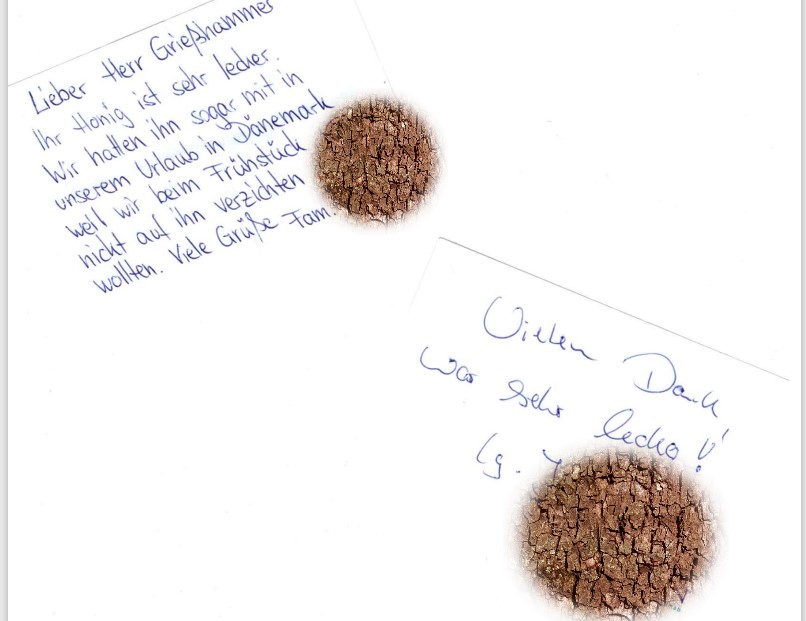 Lieber Herr Grießhammer
Ihr Honig ist sehr lecker.
Wir hatten ihn sogar mit in
unserem Urlaub in Dänemark
weil wir beim Frühstück
nicht auf ihn verzichten
wollten. Viele Grüße Fam.
Vielen Dank
war sehr lecker!
lg.